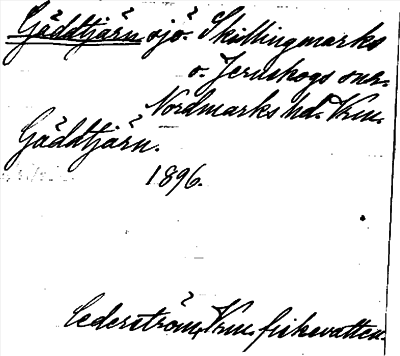 Gäddtjärn sjö. Skillingmarks
o. Järnskogs snr.
Nordmarks hd. Vrm.
Gäddtjärn.
1896.
Cederström, Vrm. fiskevatten.